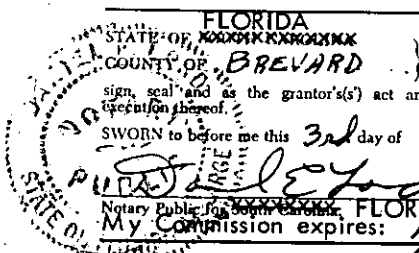 FLORIDA
STATE OF XXXXXXXXXXXXX
COUNTY OF BREVARD )
sign, seal and as the grantor's(s') act an
execution thereof.
SWORN to before me this 3rd day of
Notary Public for South Carolina. FLOR
My Commission expires: